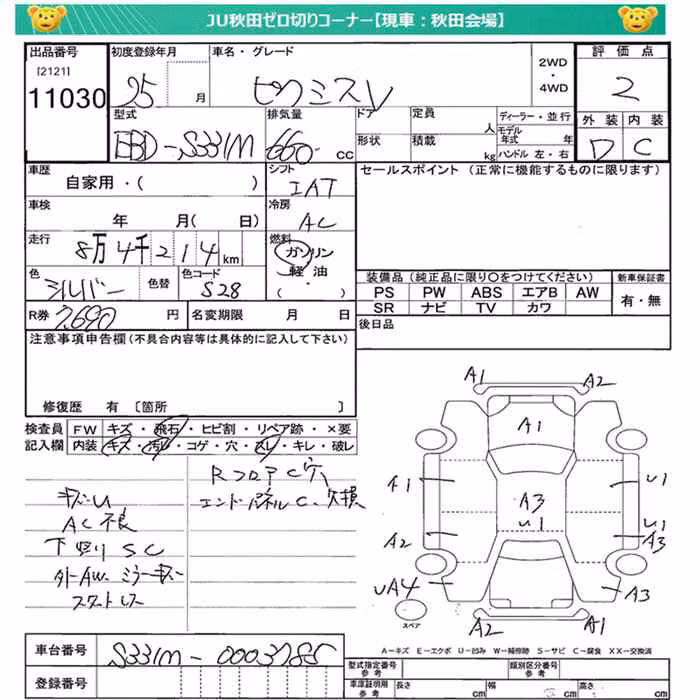 JU秋田ゼロ切りコーナー【現車：秋田会場】
出品番号 初度登録年月 車名・グレード 2WD・4WD 評価点
[2121]
11030 25 月 ピクシスV 2
型式 排気量 ドア 定員 人 ディーラー・並行 外装 内装
EBD-S331M 660 cc 形状 積載 kg モデル年式 年 ハンドル 左・右 D C
車歴 シフト セールスポイント(正常に機能するものに限ります)
自家用・( ) IAT
車検 冷房
年 月( 日) AC
走行 燃料
8万4千214km ガソリン
軽油
( )
色 色替 色コード
シルバー S28
装備品(純正品に限り〇をつけてください) 新車保証書
PS PW ABS エアB AW 有・無
SR ナビ TV カワ
R券 7,690 円 名変期限 月 日
後日品
注意事項申告欄(不具合内容等は具体的に記入して下さい)
修復歴 有 [箇所 ]
検査員 FW キズ・飛石・ヒビ割・リペア跡・×要
記入欄 内装 キズ・汚レ・コゲ・穴・スレ・キレ・破レ
キズU
AC不良
下廻りSC
外AW.ミラーキズ
スタートレス
RフロアC穴
エンドパネルC.欠損
A1 A2
A1
A1 U1
A3
U1
A2 U1
A3
UA4 A3
スペア
A2 A1
A－キズ E－エクボ U－凹み W－補修跡 S－サビ C－腐食 XX－交換済
車台番号 S331M-0003785
登録番号
型式指定番号 参考 類別区分番号 参考
車庫証明用 参考 長さ cm 幅 cm 高さ cm